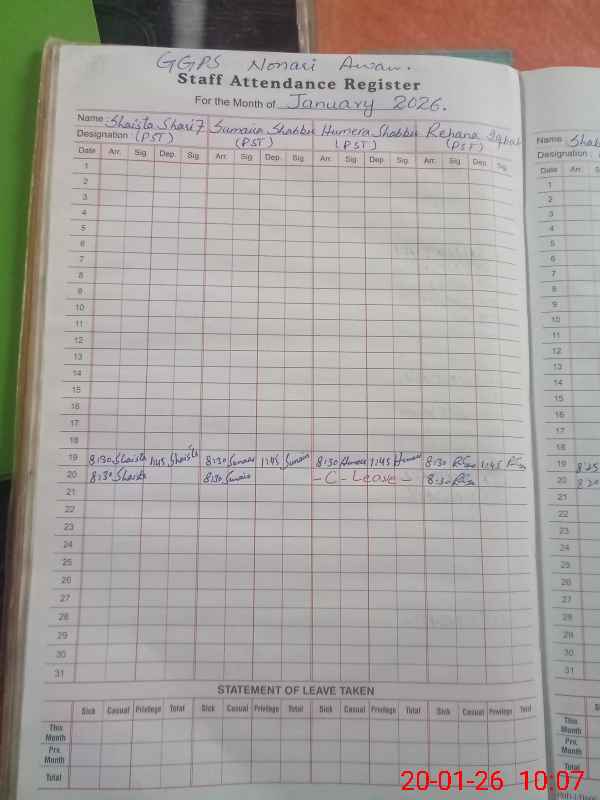 GGPS Nonari Awan.
Staff Attendance Register
For the Month of January 2026.
Name: Shaista Sharif Sumaira Shabbir Humera Shabbir Rehana Iqbal
Designation: (PST) (PST) (PST) (PST)
Date Arr. Sig. Dep. Sig. Arr. Sig. Dep. Sig. Arr. Sig. Dep. Sig. Arr. Sig. Dep. Sig.
1
2
3
4
5
6
7
8
9
10
11
12
13
14
15
16
17
18
19 8:30 Shaista 1:45 Shaista 8:30 1:45 8:30 Humera 1:45 Humera 8:30 1:45
20 8:30 Shaista 8:30 - C - Leave - 8:30
21
22
23
24
25
26
27
28
29
30
31
STATEMENT OF LEAVE TAKEN
Sick Casual Privilege Total Sick Casual Privilege Total Sick Casual Privilege Total Sick Casual Privilege Total
This Month
Prv. Month
Total
Name
Designation:
Date Arr.
1
2
3
4
5
6
7
8
9
10
11
12
13
14
15
16
17
18
19 8:25
20 8:20
21
22
23
24
25
26
27
28
29
30
31
This Month
Prv. Month
Total
20-01-26 10:07